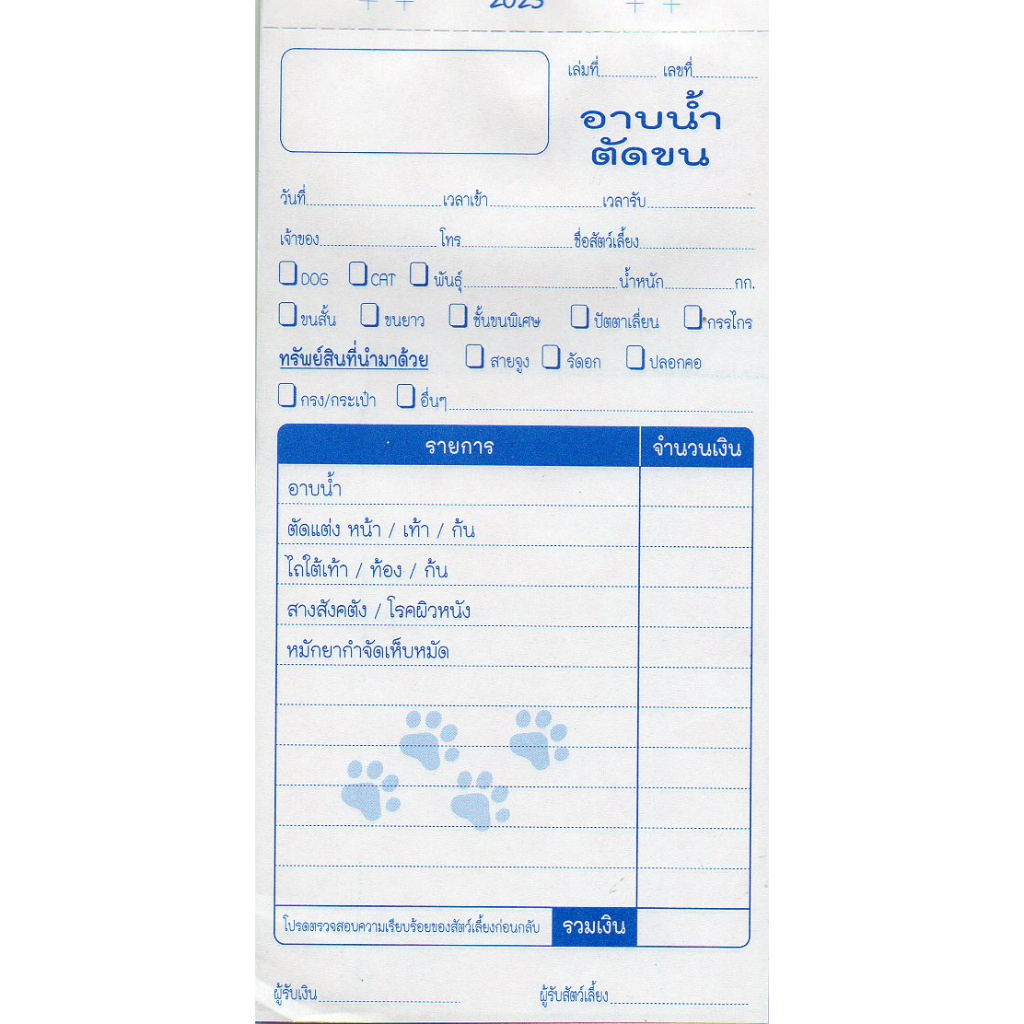 2023
เล่มที่ เลขที่
อาบน้ำ
ตัดขน
วันที่ เวลาเข้า เวลารับ
เจ้าของ โทร ชื่อสัตว์เลี้ยง
DOG CAT พันธุ์ น้ำหนัก กก.
ขนสั้น ขนยาว ชั้นขนพิเศษ ปัตตาเลี่ยน กรรไกร
ทรัพย์สินที่นำมาด้วย สายจูง รัดอก ปลอกคอ
กรง/กระเป๋า อื่นๆ
รายการ จำนวนเงิน
อาบน้ำ
ตัดแต่ง หน้า / เท้า / ก้น
ไถใต้เท้า / ท้อง / ก้น
สางสังคตัง / โรคผิวหนัง
หมักยากำจัดเห็บหมัด
โปรดตรวจสอบความเรียบร้อยของสัตว์เลี้ยงก่อนกลับ รวมเงิน
ผู้รับเงิน ผู้รับสัตว์เลี้ยง